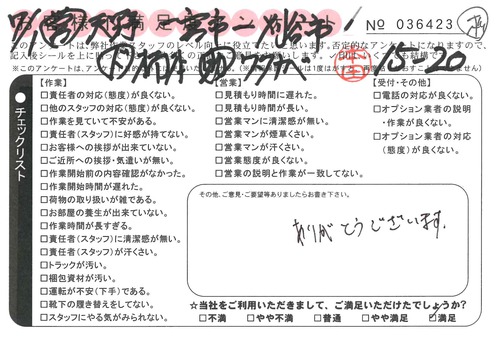 No 036423
15-20
チェックリスト
【作業】
□責任者の対応(態度)が良くない。
□他のスタッフの対応(態度)が良くない。
□作業を見ていて不安がある。
□責任者(スタッフ)に好感が持てない。
□お客様への挨拶が出来ていない。
□ご近所への挨拶・気遣いが無い。
□作業開始前の内容確認がなかった。
□作業開始時間が遅れた。
□荷物の取り扱いが雑である。
□お部屋の養生が出来ていない。
□作業時間が長すぎる。
□責任者(スタッフ)に清潔感が無い。
□責任者(スタッフ)が汗くさい。
□トラックが汚い。
□梱包資材が汚い。
□運転が不安(下手)である。
□靴下の履き替えをしてない。
□スタッフにやる気がみられない。
【営業】
□見積もり時間に遅れた。
□見積もり時間が長い。
□営業マンに清潔感が無い。
□営業マンが煙草くさい。
□営業マンが汗くさい。
□営業態度が良くない。
□営業の説明と作業が一致してない。
【受付・その他】
□電話の対応が良くない。
□オプション業者の説明
・作業が良くない。
□オプション業者の対応
(態度)が良くない。
その他、ご意見・ご要望等ありましたらお書き下さい。
ありがとうございます。
☆当社をご利用いただきまして、ご満足いただけたでしょうか?
□不満 □やや不満 □普通 □やや満足 ☑満足